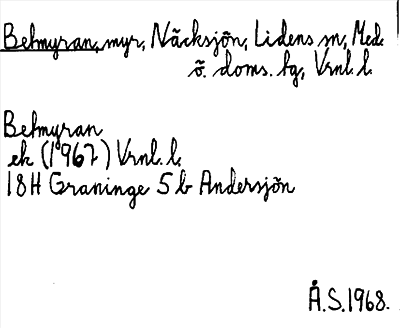 Belmyran, myr, Näcksjön, Lidens sn, Med.
ö. doms. bg, Vrnl. l.
Belmyran
ek (1967) Vrnl. l.
18H Graninge 5 b Andersjön
Å.S. 1968.